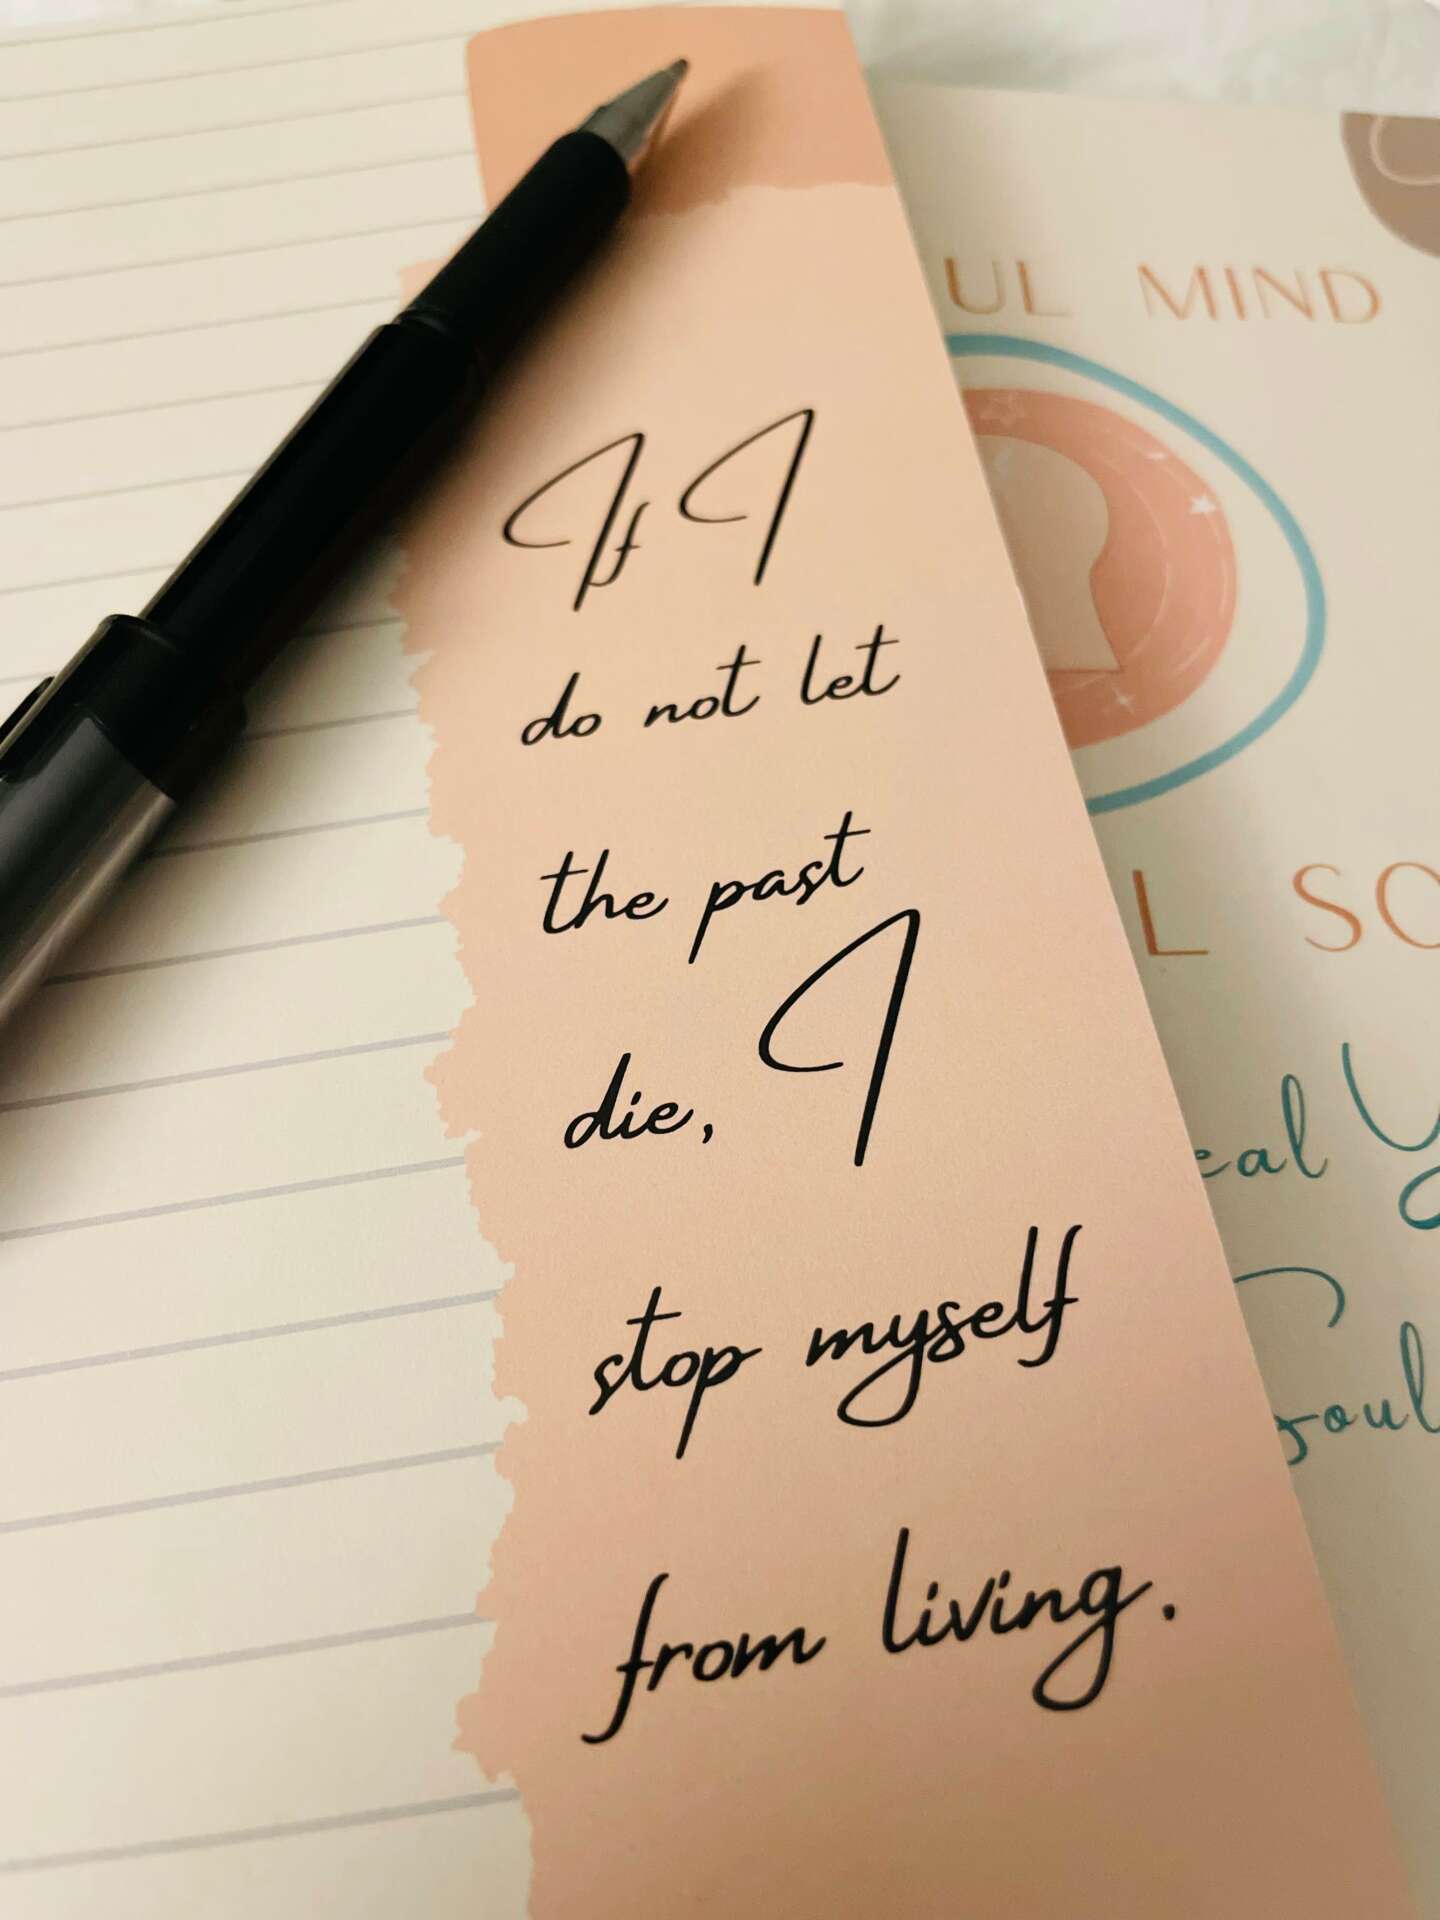 If I
do not let
the past
die, I
stop myself
from living.
UL MIND
L SO
eal Y
Soul